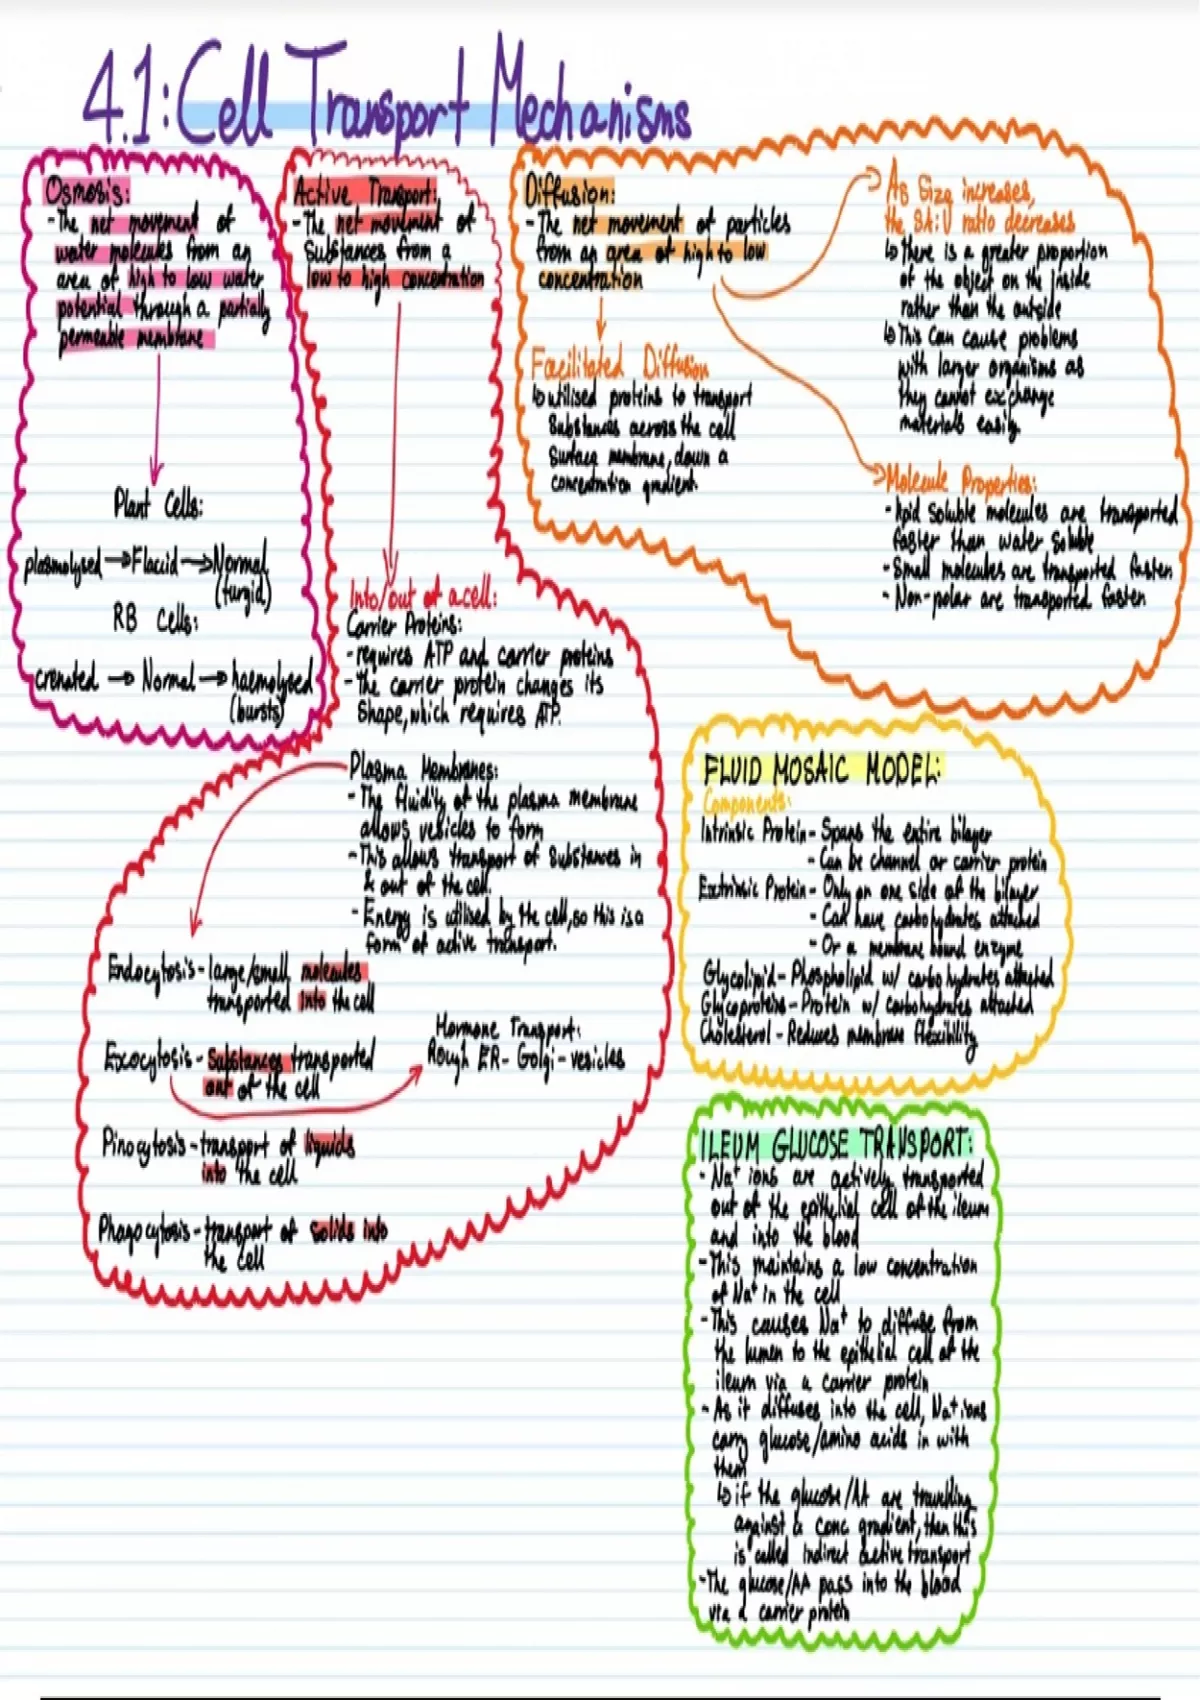 4.1: Cell Transport Mechanisms
Osmosis:
- The net movement of
water molecules from an
area of high to low water
potential through a partially
permeable membrane
Plant Cells:
plasmolysed → Flaccid → Normal
(turgid)
RB Cells:
crenated → Normal → haemolysed
(bursts)
Active Transport:
- The net movement of
Substances from a
low to high concentration
Into/out of a cell:
Carrier Proteins:
- requires ATP and carrier proteins
- The carrier protein changes its
Shape, which requires ATP.
Plasma Membranes:
- The fluidity of the plasma membrane
allows vesicles to form
- This allows transport of substances in
& out of the cell.
- Energy is utilised by the cell, so this is a
form of active transport.
Endocytosis - large/small molecules
transported into the cell
Exocytosis - Substances transported
out of the cell
Hormone Transport:
Rough ER - Golgi - vesicles
Pinocytosis - transport of liquids
into the cell
Phagocytosis - transport of solids into
the cell
Diffusion:
- The net movement of particles
from an area of high to low
concentration
Facilitated Diffusion
↳ utilised proteins to transport
Substances across the cell
Surface membrane, down a
concentration gradient.
As Size increases,
the SA:V ratio decreases
↳ There is a greater proportion
of the object on the inside
rather than the outside
↳ This can cause problems
with larger organisms as
they cannot exchange
materials easily.
Molecule Properties:
- lipid soluble molecules are transported
faster than water soluble
- Small molecules are transported faster
- Non-polar are transported faster
FLUID MOSAIC MODEL:
Components:
Intrinsic Protein - Spans the entire bilayer
- Can be channel or carrier protein
Extrinsic Protein - Only on one side of the bilayer
- Can have carbohydrates attached
- Or a membrane bound enzyme
Glycolipid - Phospholipid w/ carbohydrates attached
Glycoproteins - Protein w/ carbohydrates attached
Cholesterol - Reduces membrane flexibility
ILEUM GLUCOSE TRANSPORT:
- Na⁺ ions are actively transported
out of the epithelial cell of the ileum
and into the blood
- This maintains a low concentration
of Na⁺ in the cell
- This causes Na⁺ to diffuse from
the lumen to the epithelial cell of the
ileum via a carrier protein
- As it diffuses into the cell, Na⁺ ions
carry glucose/amino acids in with
them
↳ if the glucose/AA are travelling
against a conc gradient, then this
is called indirect active transport
- The glucose/AA pass into the blood
via a carrier protein